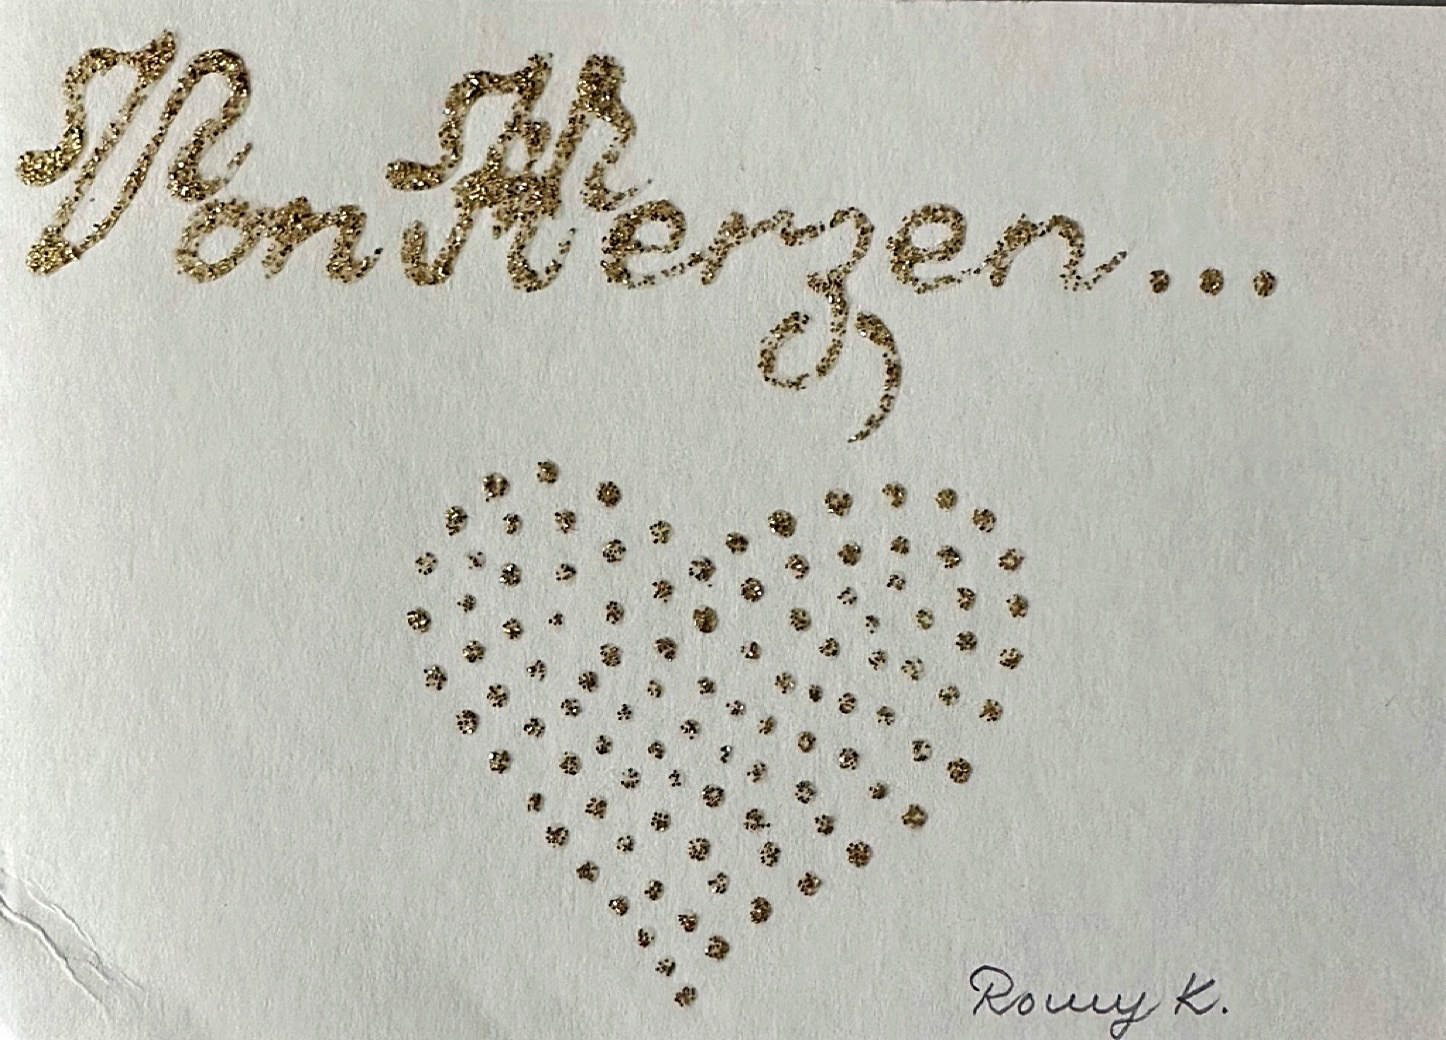 Von Herzen...
Romy K.